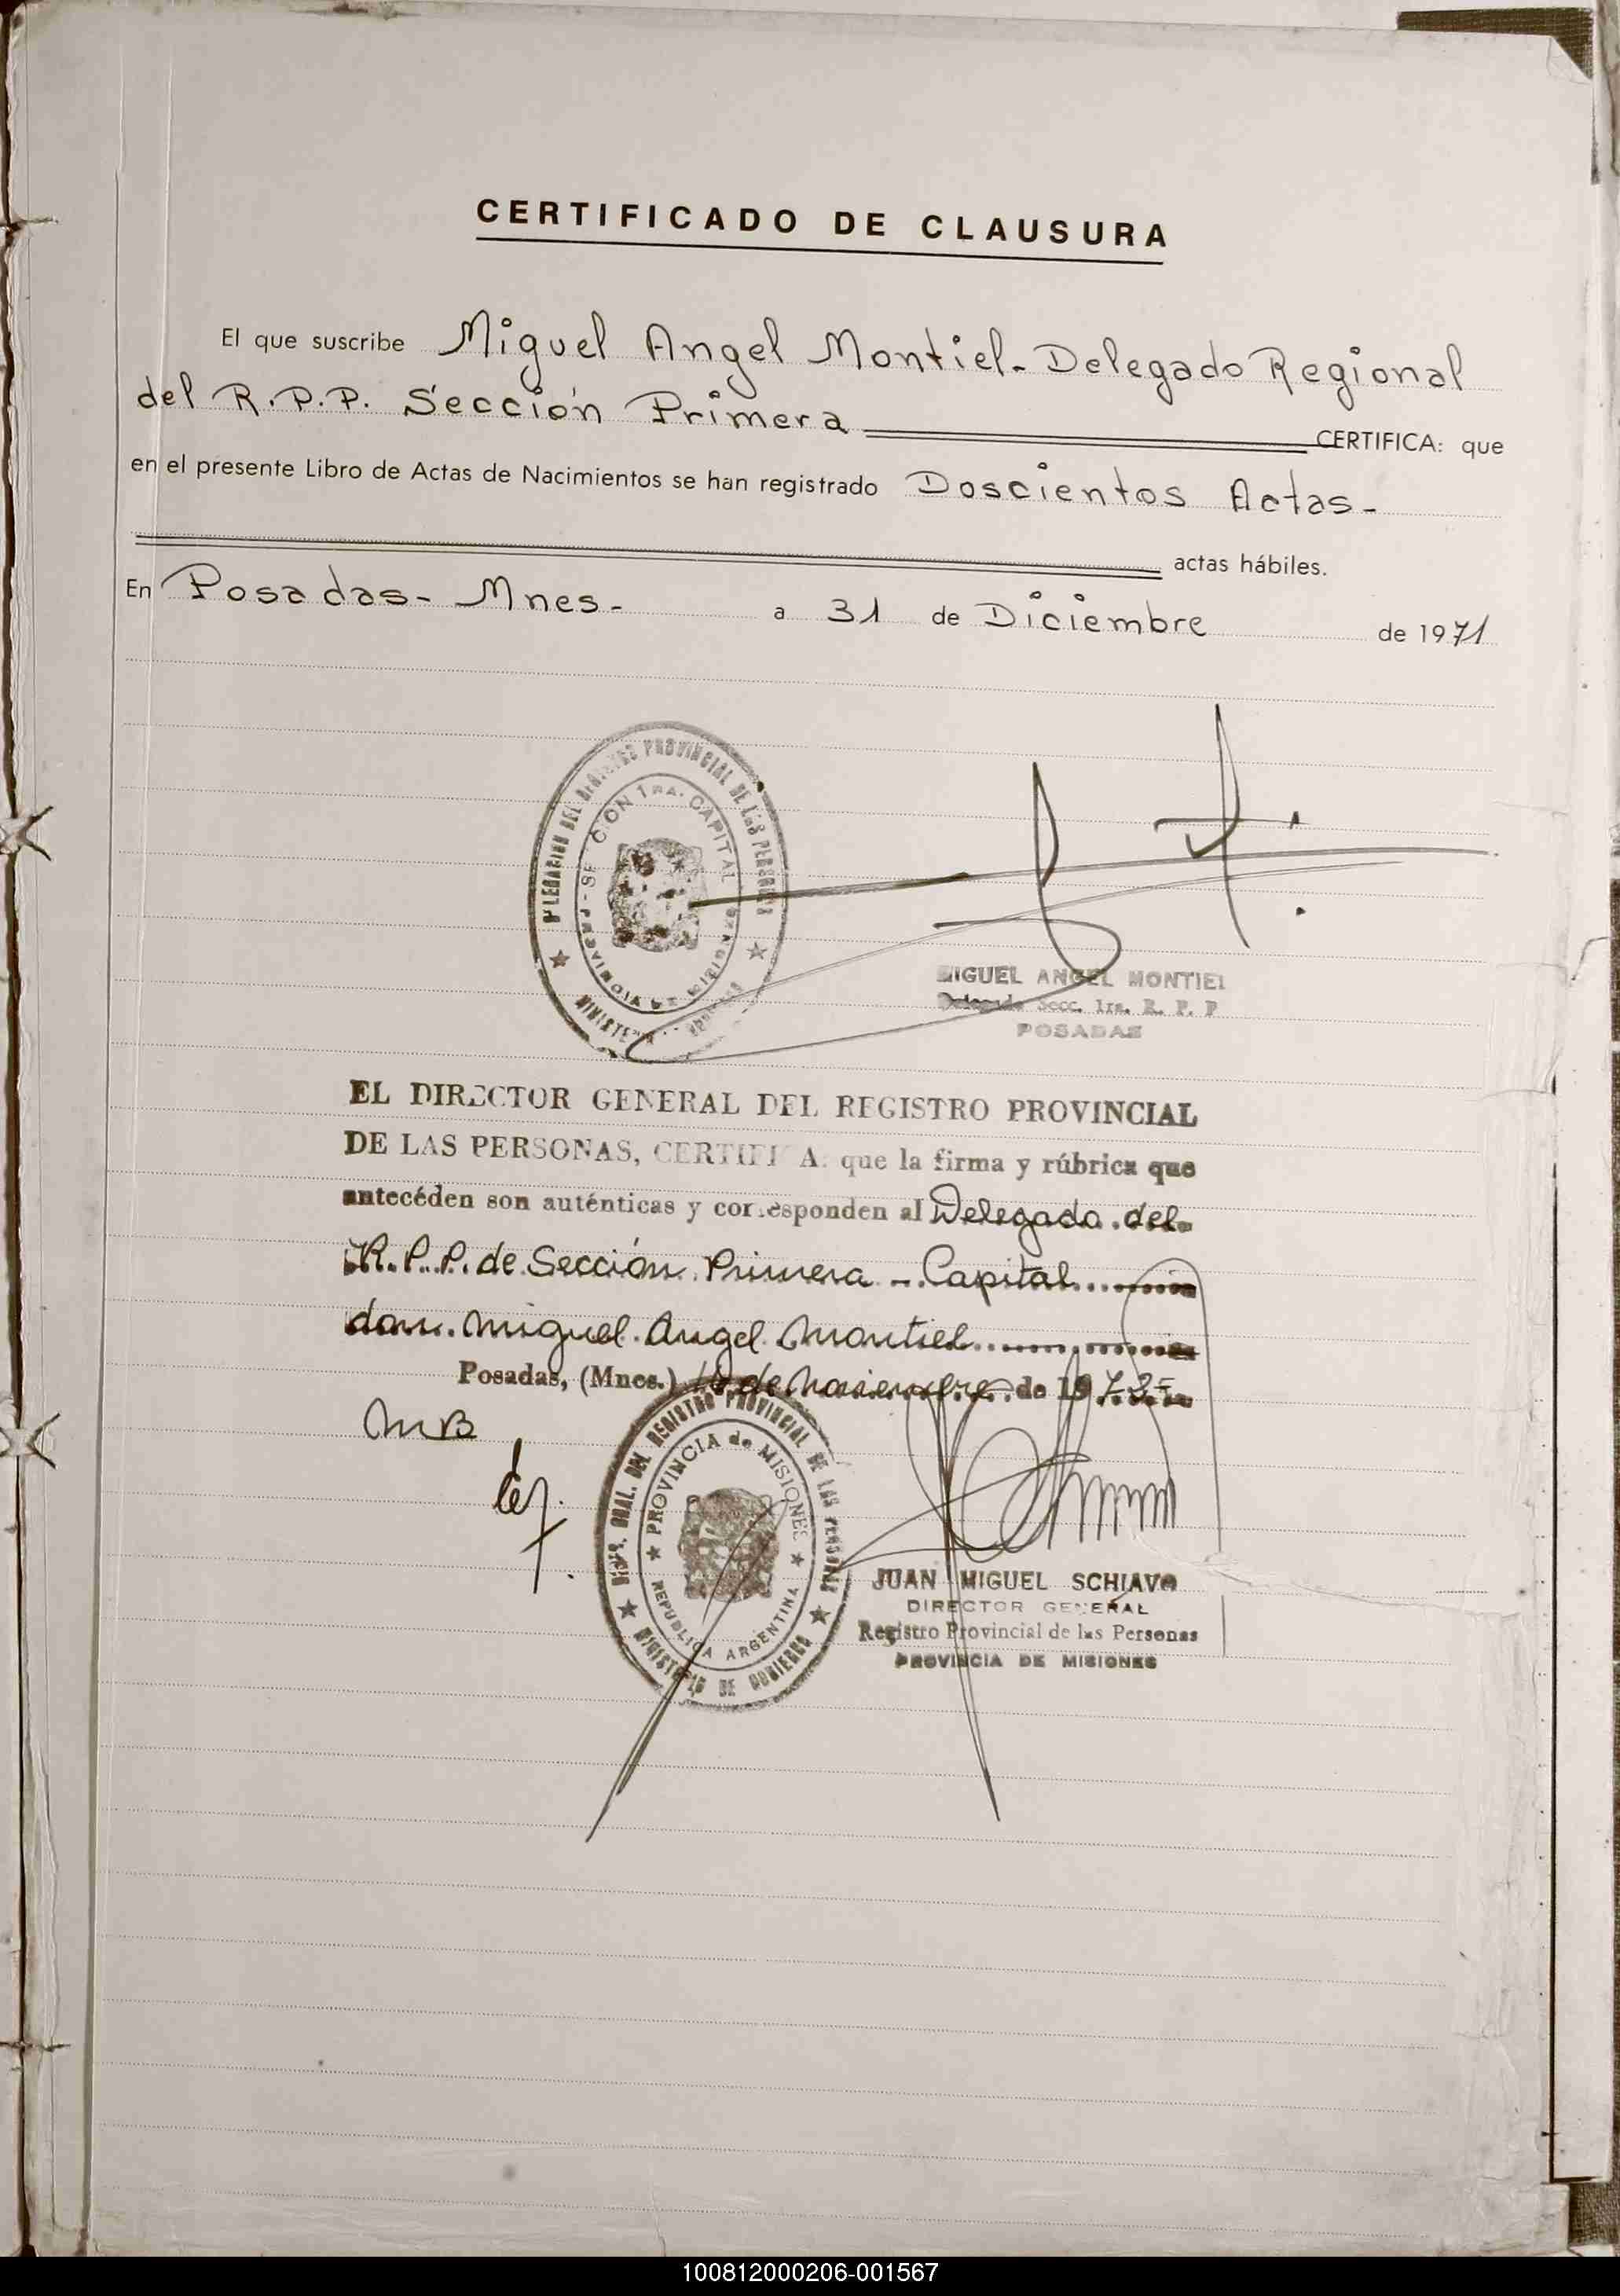 CERTIFICADO DE CLAUSURA
El que suscribe Miguel Angel Montiel - Delegado Regional
del R.P.P. Sección Primera CERTIFICA: que
en el presente Libro de Actas de Nacimientos se han registrado Doscientos Actas -
actas hábiles.
En Posadas - Mnes - a 31 de Diciembre de 1971
DELEGACION DEL REGISTRO PROVINCIAL DE LAS PERSONAS
SECCION 1RA. CAPITAL
PROVINCIA DE MISIONES
MIGUEL ANGEL MONTIEL
Delegado Secc. 1ra. R. P. P
POSADAS
EL DIRECTOR GENERAL DEL REGISTRO PROVINCIAL
DE LAS PERSONAS, CERTIFICA: que la firma y rúbrica que
antecéden son auténticas y corresponden al Delegado del
R.P.P. de Sección Primera - Capital
don Miguel Angel Montiel
Posadas, (Mnes.) de Noviembre de 197
MB
DIRE. GRAL. DEL REGISTRO PROVINCIAL DE LAS PERSONAS
PROVINCIA de MISIONES
REPUBLICA ARGENTINA
MINISTERIO DE GOBIERNO
JUAN MIGUEL SCHIAVO
DIRECTOR GENERAL
Registro Provincial de las Personas
PROVINCIA DE MISIONES
100812000206-001567